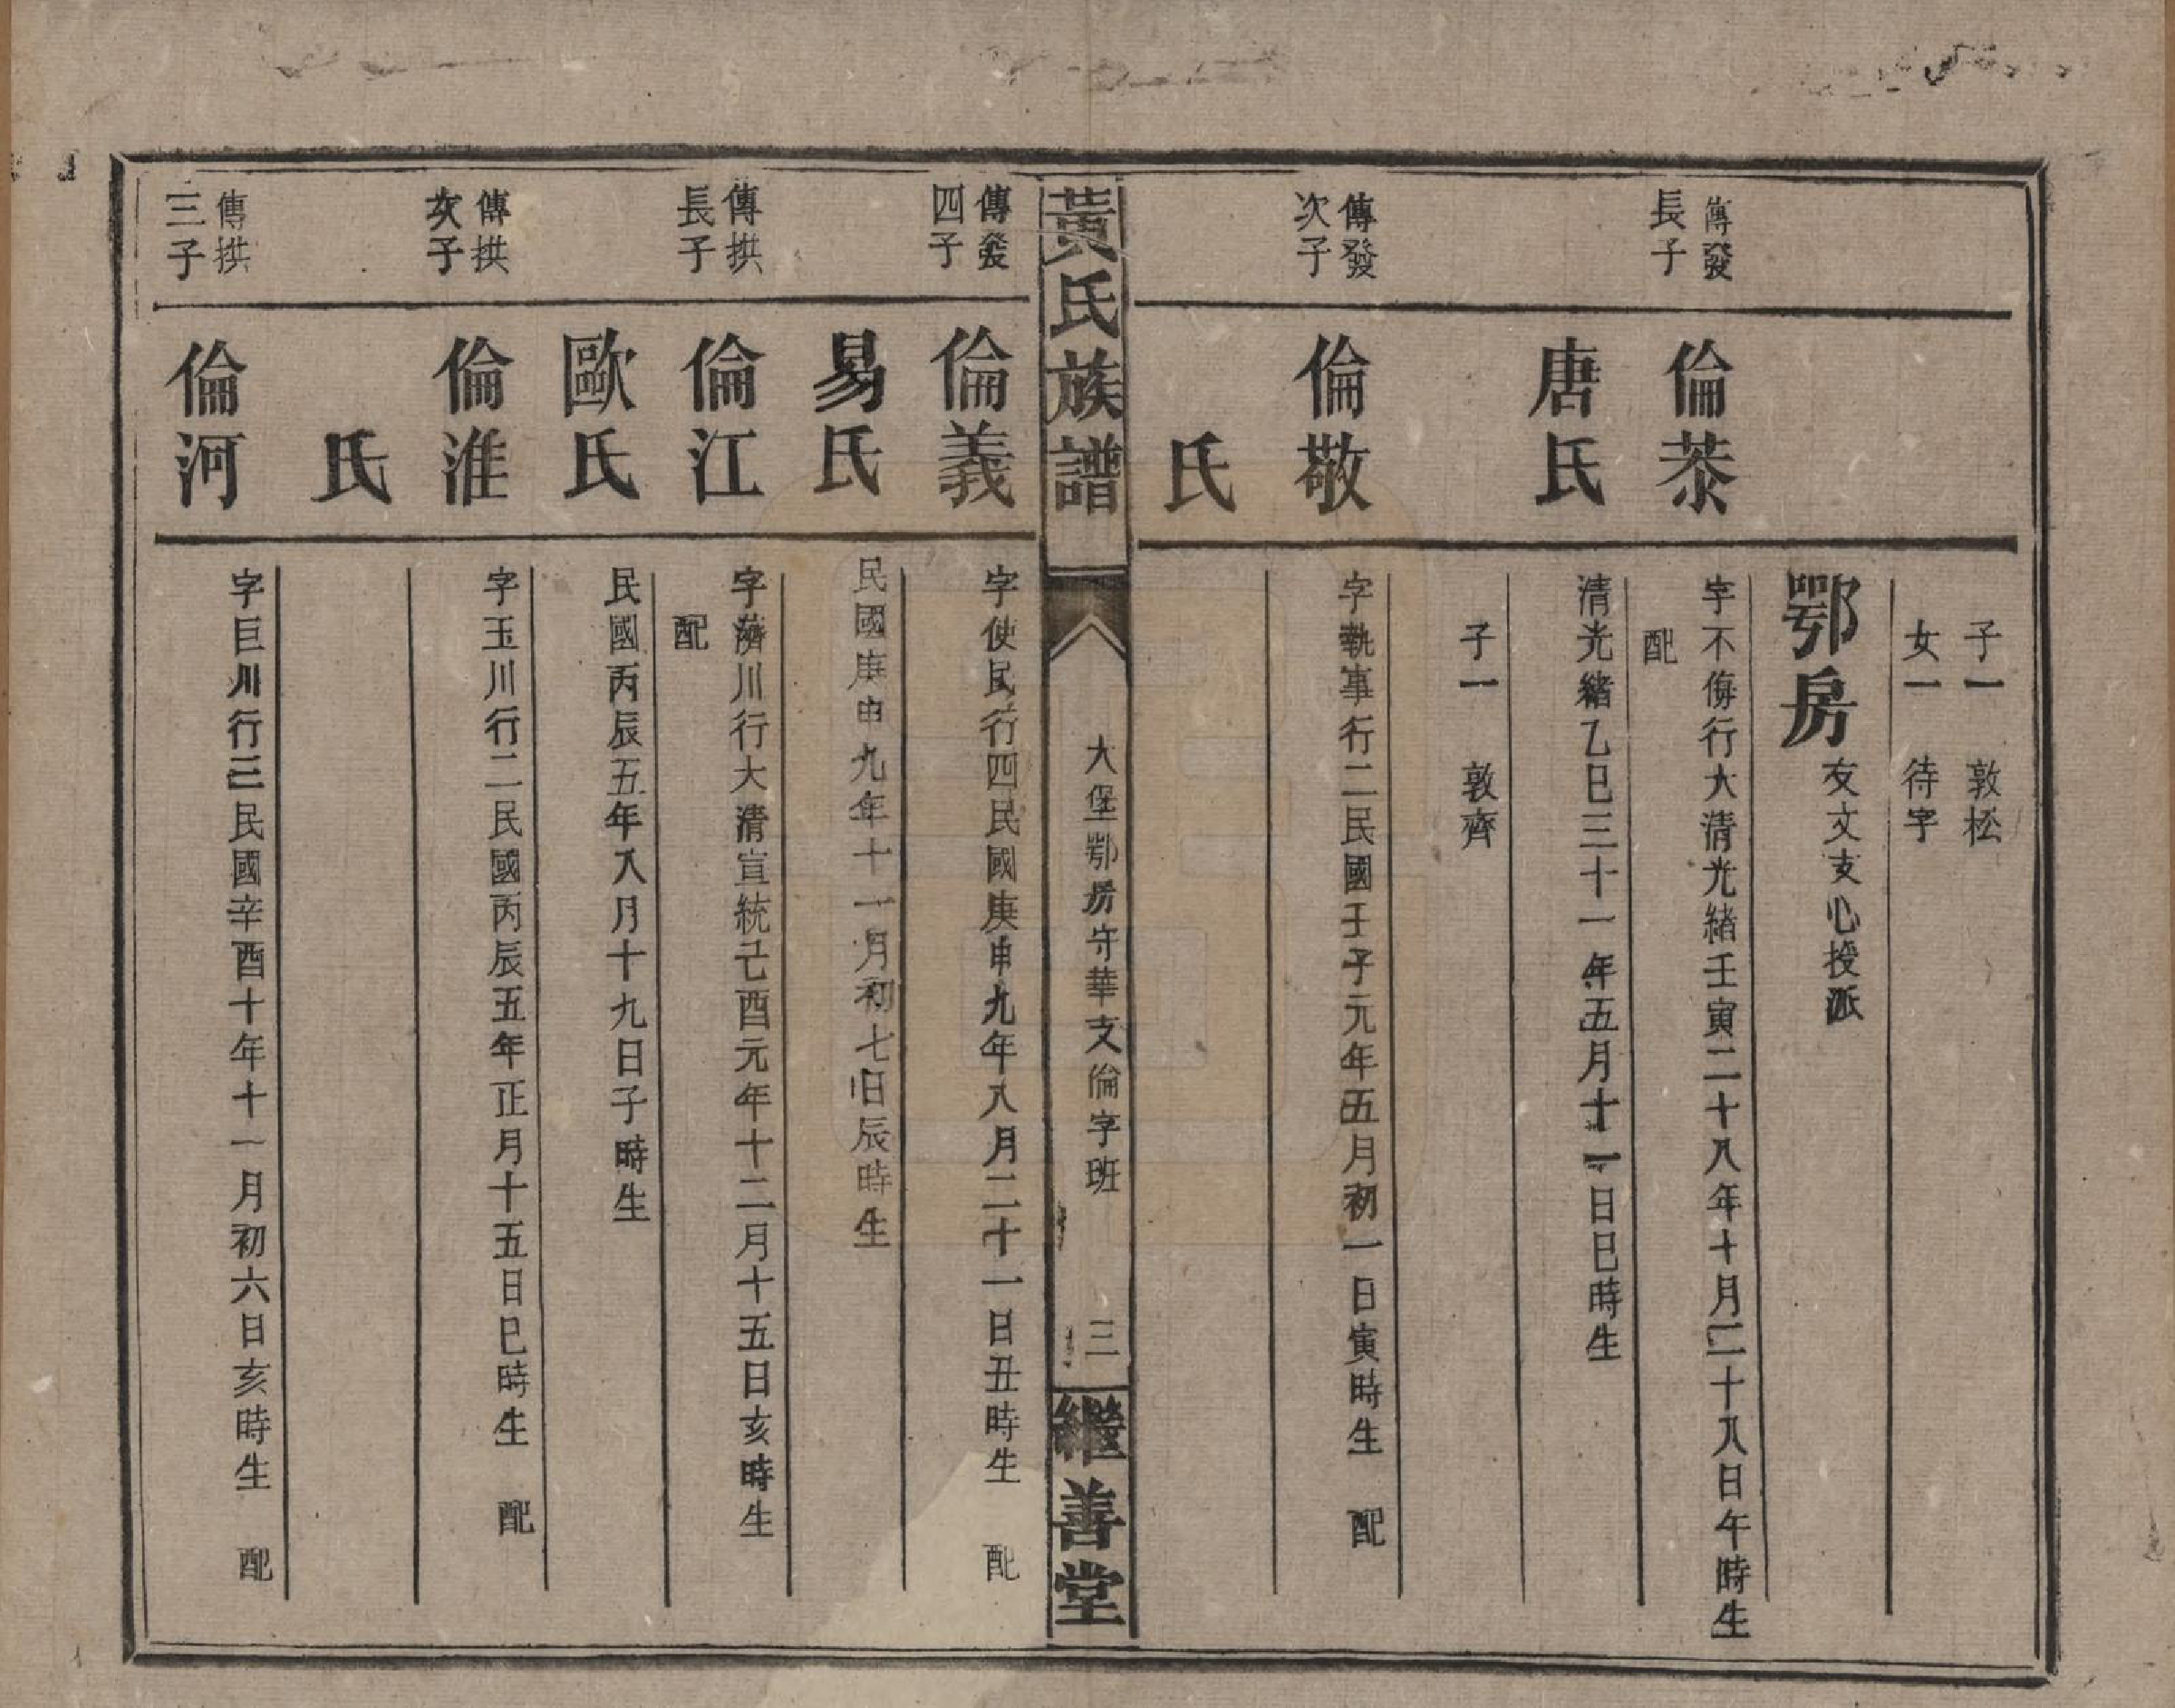 子一 敦松
女一 待字
鄂房 友文支心授派
傳發
長子
倫恭
字不侮行大清光緒壬寅二十八年十月二十八日午時生
配
唐氏
清光緒乙巳三十一年五月十一日巳時生
子一 敦齊
傳發
次子
倫敬
字執事行二民國壬子元年五月初一日寅時生 配
氏
黃氏族譜
大堡鄂房守華支倫字班
三
繼善堂
傳發
四子
倫義
字使民行四民國庚申九年八月二十一日丑時生 配
易氏
民國庚申九年十一月初七日辰時生
傳拱
長子
倫江
字濟川行大清宣統己酉元年十二月十五日亥時生
配
歐氏
民國丙辰五年八月十九日子時生
傳拱
次子
倫淮
字玉川行二民國丙辰五年正月十五日巳時生 配
氏
傳拱
三子
倫河
字巨川行三民國辛酉十年十一月初六日亥時生 配